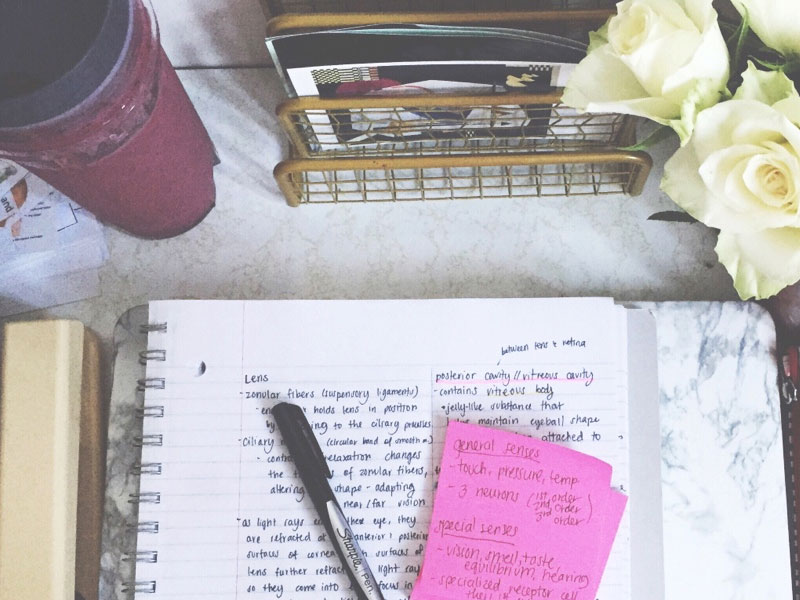 and
Lens
- zonular fibers (suspensory ligaments)
holds lens in position
by to the ciliary
- ciliary (circular band of smooth m.)
relaxation changes
the of zonular fibers,
altering shape - adapting
near/far vision
- as light rays the eye, they
are refracted at anterior/posterior
surfaces of surfaces of
lens further refract light
so they come into focus in
between lens & retina
posterior cavity // vitreous cavity
- contains vitreous body
• jelly-like substance that
maintain eyeball shape
attached to
general senses
- touch, pressure, temp
- 3 neurons (1st order
2nd order
3rd order)
special senses
- vision, smell, taste,
equilibrium, hearing
- specialized receptor cell
Sharpie Pen